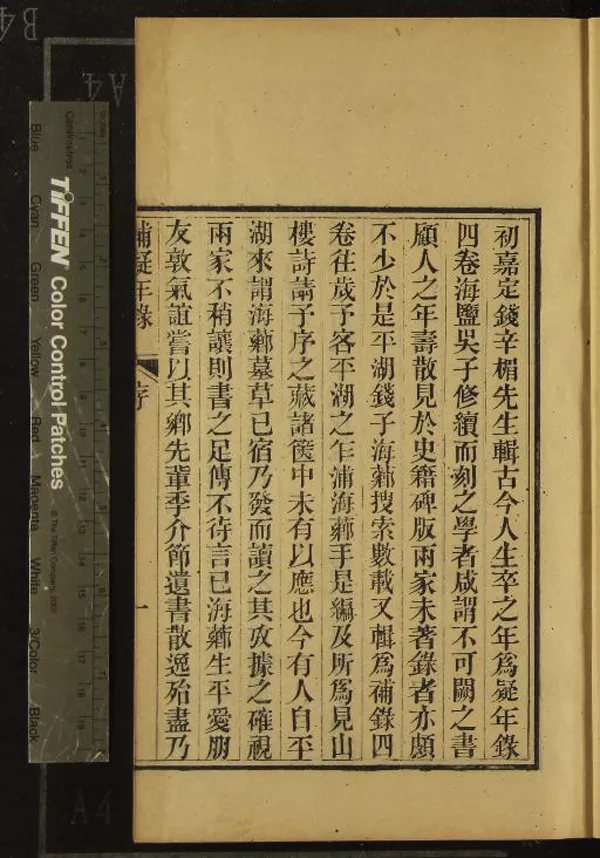 初嘉定錢辛楣先生輯古今人生卒之年爲疑年錄
四卷海鹽吳子修續而刻之學者咸謂不可闕之書
顧人之年壽散見於史籍碑版兩家未著錄者亦頗
不少於是平湖錢子海薌搜索數載又輯爲補錄四
卷往歲予客平湖之乍浦海薌手是編及所爲見山
樓詩請予序之藏諸篋中未有以應也今有人自平
湖來謂海薌墓草已宿乃發而讀之其攷據之確視
兩家不稍讓則書之足傳不待言已海薌生平愛朋
友敦氣誼嘗以其鄉先輩季介節遺書散逸殆盡乃
補疑年錄
序
一
TIFFEN Color Control Patches
© The Tiffen Company, 2007
Centimetres
Blue
Cyan
Green
Yellow
Red
Magenta
White
3/Color
Black
B4
A4
A4